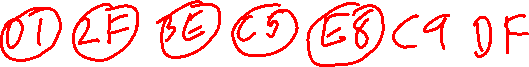 01 2F BE C5 E8 C9 DF